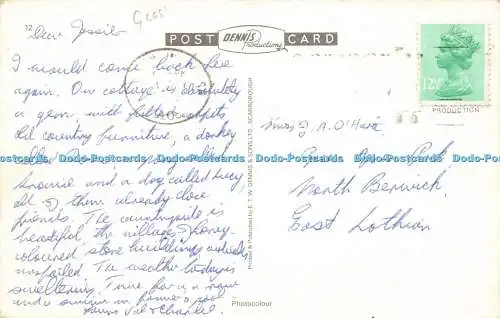 12
Dear Jessie
G cos
POST DENNIS Productions CARD
I would come back here
again. Our cottage is absolutely
a gem, with fitted carpets
old country furniture, a donkey
called
Brownie and a dog called Lucy
all of them already close
friends. The countryside is
beautiful, the villages of honey-
coloured stone buildings entirely
unspoiled. The weather today is
sweltering. Time for a row
and a swim in
Yours Val & Charlie
Printed & Published by E. T. W. DENNIS & SONS LTD., SCARBOROUGH
Photocolour
12½P
PRODUCTION
Miss J. A. O'Hara
North Berwick
East Lothian
Dodo-Postcards Dodo-Postcards Dodo-Postcards Dodo-Postcards Dodo-Postcards Dodo-Postcards